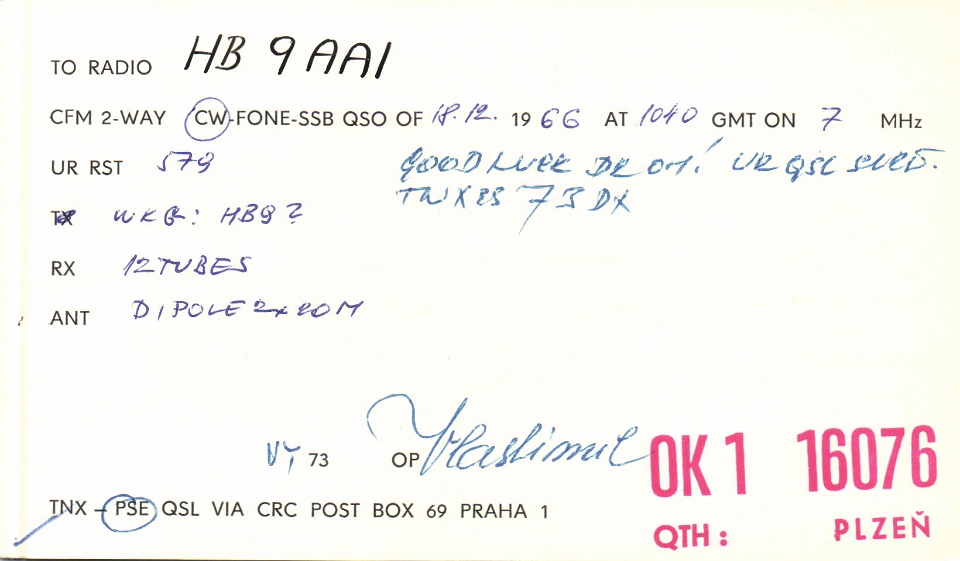 TO RADIO HB 9 AA1
CFM 2-WAY CW-FONE-SSB QSO OF 18.12. 1966 AT 1040 GMT ON 7 MHz
UR RST 579 GOOD LUCK DR OM! UR QSL SURE.
TNX ES 73 DX
TX WKG: HB9?
RX 12TUBES
ANT DIPOLE 2x20M
VY 73 OP Vlastimil
OK 1 16076
TNX – PSE QSL VIA CRC POST BOX 69 PRAHA 1
QTH: PLZEŇ